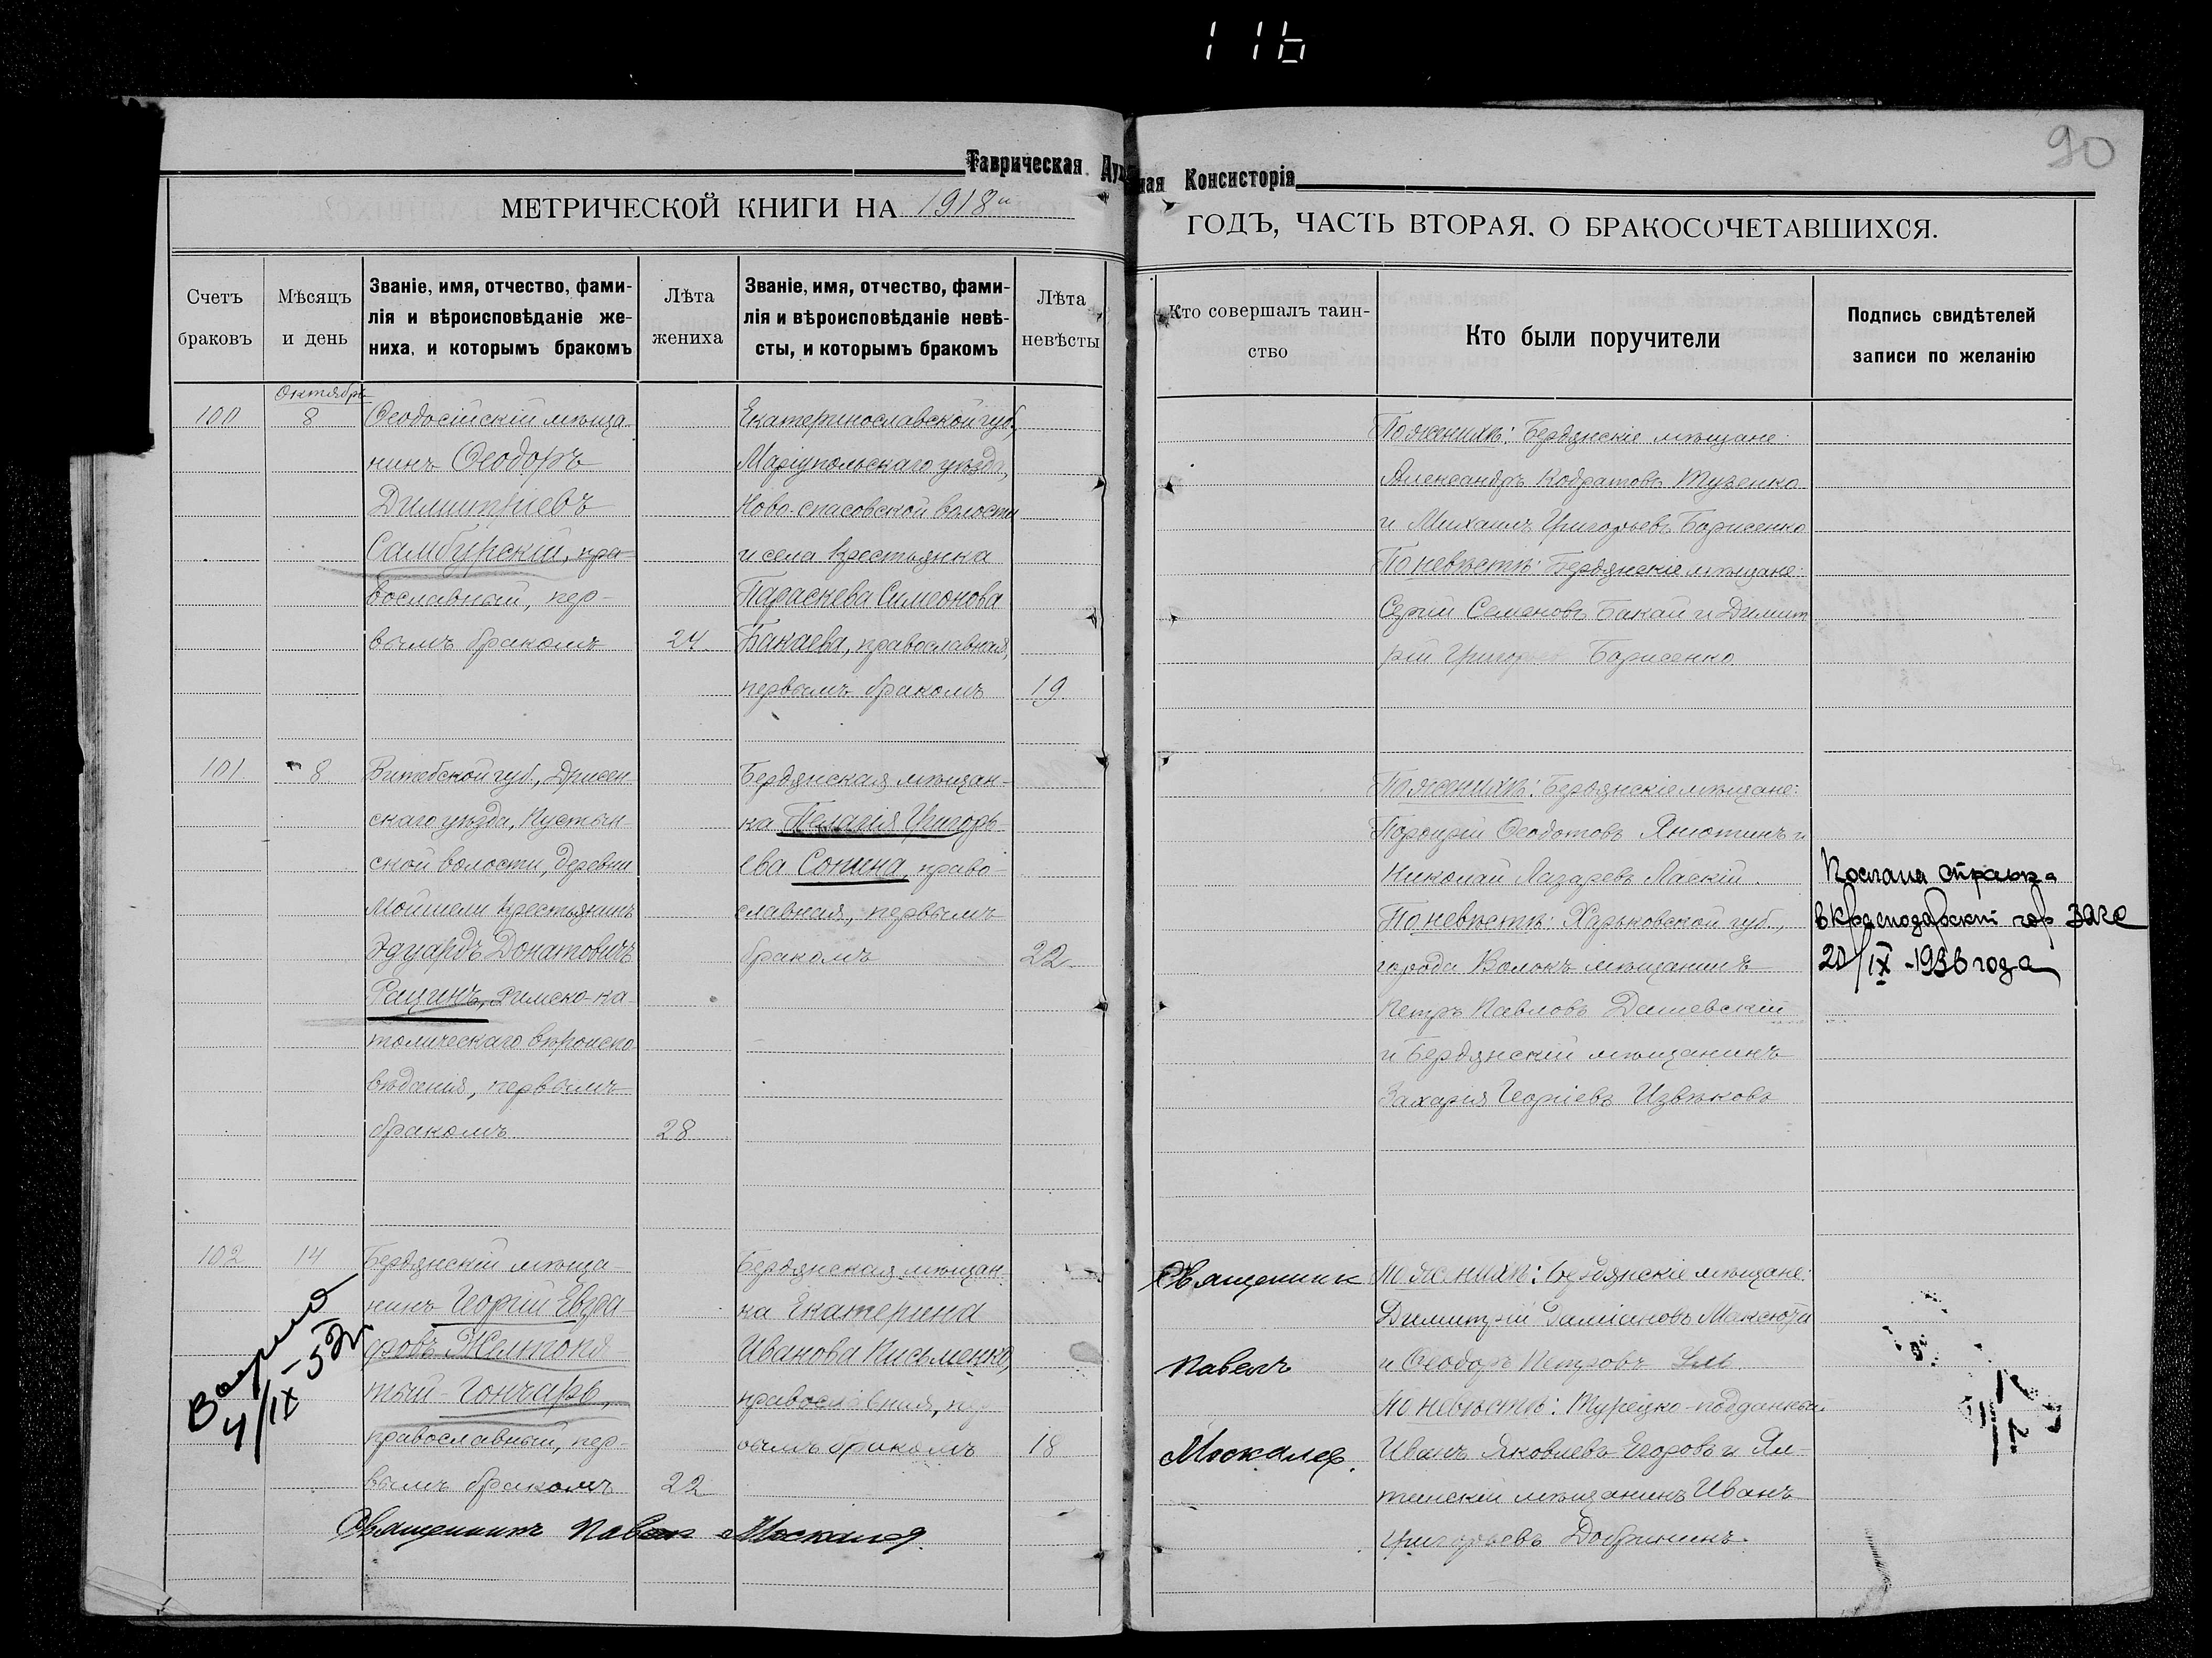 116
90
Таврическая Духовная Консисторія
МЕТРИЧЕСКОЙ КНИГИ НА 1918й
ГОДЪ, ЧАСТЬ ВТОРАЯ, О БРАКОСОЧЕТАВШИХСЯ.
Счетъ
браковъ
Мѣсяцъ
и день
Званіе, имя, отчество, фами-
лія и вѣроисповѣданіе же-
ниха, и которымъ бракомъ
Лѣта
жениха
Званіе, имя, отчество, фами-
лія и вѣроисповѣданіе невѣ-
сты, и которымъ бракомъ
Лѣта
невѣсты
Кто совершалъ таин-
ство
Кто были поручители
Подпись свидѣтелей
записи по желанію
Октябрь
100
8
Ѳеодосійскій мѣща-
нинъ Ѳеодоръ
Димитріевъ
Самбурскій, пра-
вославный, пер-
вымъ бракомъ
24
Екатеринославской губ.,
Маріупольскаго уѣзда,
Ново-спасовской волости
и села крестьянка
Параскева Симеонова
Бакаева, православная,
первымъ бракомъ
19
По женихѣ: Бердянскіе мѣщане:
Александръ Кодратовъ Тузенко
и Михаилъ Григорьевъ Борисенко
По невѣстѣ: Бердянскіе мѣщане:
Сергій Семеновъ Бакай и Димит
рій Григорьевъ Борисенко
101
8
Витебской губ., Дрисен-
скаго уѣзда, Пустын-
ской волости, деревни
Мойшели крестьянинъ
Эдуардъ Донатовичъ
Рацинъ, Римско-ка-
толическаго вѣроиспо-
вѣданія, первымъ
бракомъ
28
Бердянская мѣщан-
ка Пелагія Григорь-
ева Сопина, право-
славная, первымъ
бракомъ
22
По женихѣ: Бердянскіе мѣщане:
Порфирій Ѳеодотовъ Анютинъ и
Николай Лазаревъ Ласкій.
По невѣстѣ: Харьковской губ.,
города Волокъ мѣщанинъ
Петръ Павловъ Дашевскій
и Бердянскій мѣщанинъ
Захарія Георгіевъ Извѣковъ
Послана справка
в Краснодарский гор Загс
20/IX-1936 года
102
14
Бердянскій мѣща-
нинъ Георгій Евгра-
фовъ Желтоня-
тый-Гончаръ,
православный, пер-
вымъ бракомъ
22
Бердянская мѣщан-
ка Екатерина
Иванова Письменко,
православная, пер
вымъ бракомъ
18
Священник
Павелъ
Москалев.
По женихѣ: Бердянскіе мѣщане:
Димитрій Даміановъ Максюта
и Ѳеодоръ Петровъ
По невѣстѣ: Турецко-подданный
Иванъ Яковлевъ Егоровъ и Ял-
тинскій мѣщанинъ Иванъ
Григорьевъ Добрининъ.
4/IX-52г.
Священникъ Павел Москалев.